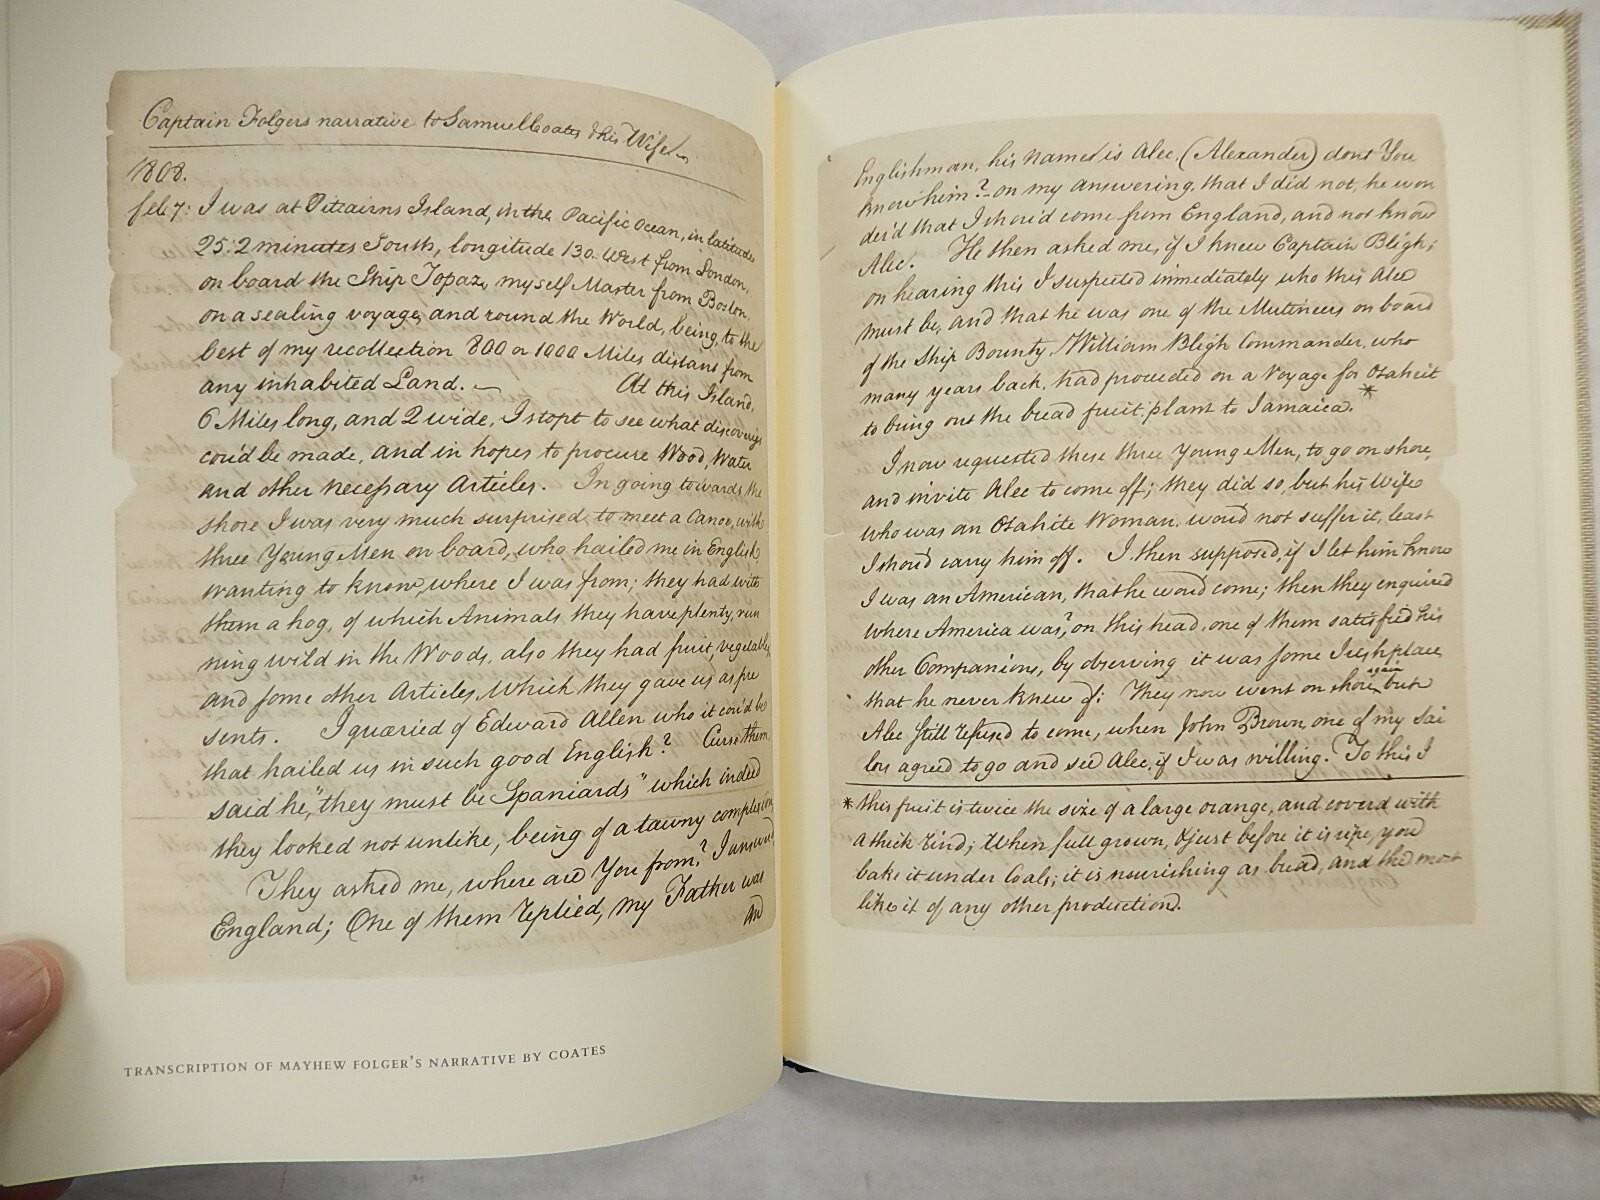 Captain Folgers narrative to Samuel Coates & his Wife
1808.
feb 7: I was at Pitcairns Island, in the Pacific Ocean, in latitude
25: 2 minutes South, longitude 130. West from London,
on board the Ship Topaz, myself Master from Boston,
on a sealing voyage, and round the World, being, to the
best of my recollection 800 or 1000 Miles distant from
any inhabited Land. — At this Island,
6 Miles long, and 2 wide, I stopt to see what discoverys
cou'd be made, and in hopes to procure Wood, Water
and other necessary Articles. In going towards the
shore I was very much surprised to meet a Canoe, with
three Young Men on board, who hailed me in English,
wanting to know, where I was from; they had with
them a hog, of which Animals they have plenty, run
ning wild in the Woods, also they had fruit, vegetables,
and some other Articles, Which they gave us as pre
sents. I quæried of Edward Allen who it cou'd be
that hailed us in such good English? Curse them
said he, "they must be Spaniards" which indeed
they looked not unlike, being of a tawny complexion
They asked me, where are You from? I answered,
England; One of them replied, my Father was
an
TRANSCRIPTION OF MAYHEW FOLGER'S NARRATIVE BY COATES
Englishman, his name is Alec, (Alexander) dont You
know him? - on my answering, that I did not, he won
der'd that I shou'd come from England, and not know
Alec. He then asked me, if I knew Captain Bligh;
on hearing this I suspected immediately who this Alec
must be, and that he was one of the Mutineers on board
of the Ship Bounty, William Bligh Commander, who
many years back, had proceeded on a Voyage for Otaheit
to bring out the bread fruit plant to Jamaica. *
I now requested these three Young Men, to go on shore,
and invite Alec to come off; they did so, but his Wife
who was an Otahite Woman, woud not suffer it, least
I shoud carry him off. I then supposed, if I let him know
I was an American, that he woud come; then they enquired
where America was? on this head, one of them satisfied his
other Companions, by observing it was some Irish place
that he never knew of: They now went on shore again, but
Alec still refused to come, when John Brown, one of my Sai
lors agreed to go and see Alec, if I was willing. To this I
* this fruit is twice the size of a large orange, and coverd with
a thick rind; When full grown, & just before it is ripe, you
bake it under Coals; it is nourishing as bread, and the most
like it of any other production.